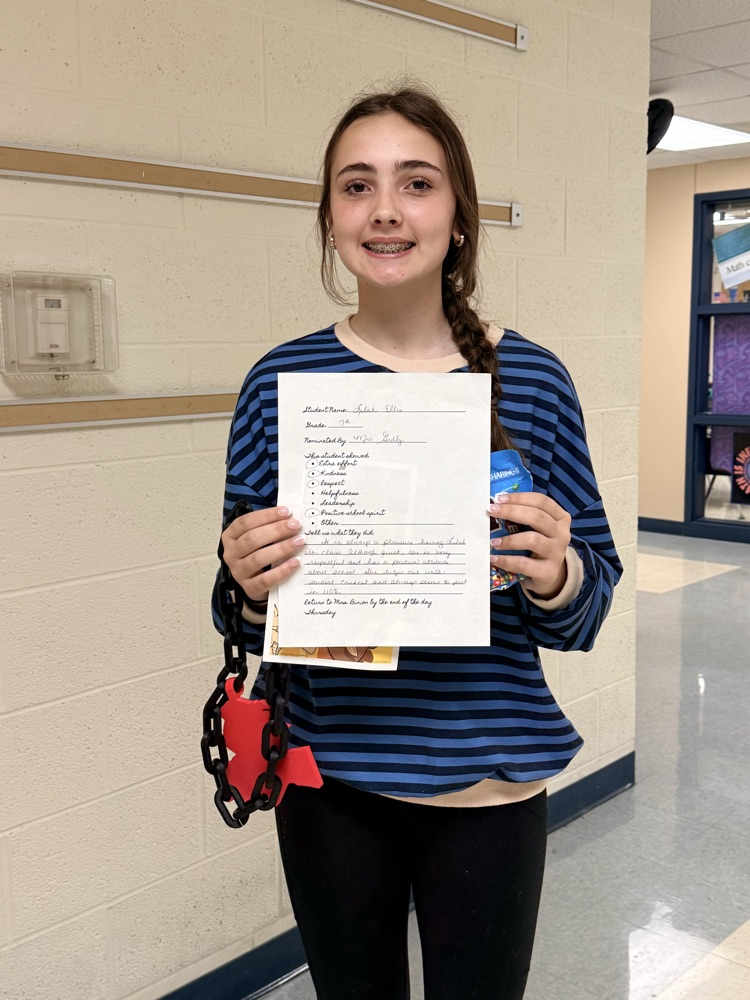 Student Name: Lylah Ellis
Grade: 7th
Nominated By: Mrs. Gidly
This student showed
• Extra effort
• Kindness
• Respect
• Helpfulness
• Leadership
• Positive school spirit
• Other
Tell us what they did
It is always a pleasure having Lylah
in class. Although quiet, she is very
respectful and has a positive attitude
about school. She helps out with
student council and always seems to put
in 110%.
Return to Mrs. Binion by the end of the day
Thursday.
SHARING SI
Math